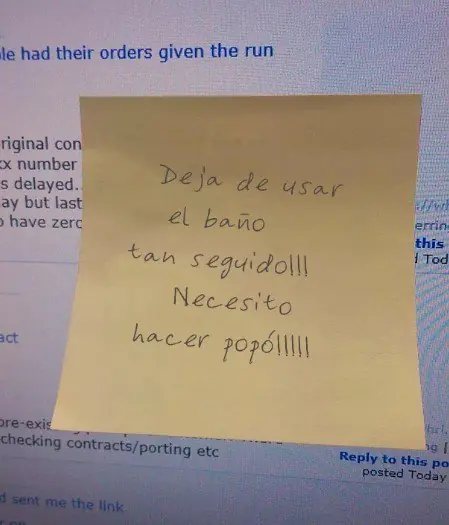 le had their orders given the run
riginal con
x number
s delayed..
ay but last
have zero
Deja de usar
el baño
tan seguido!!!
Necesito
hacer popó!!!!!
this
Tod
act
ore-exis
checking contracts/porting etc
Reply to this po
posted Today
d sent me the link